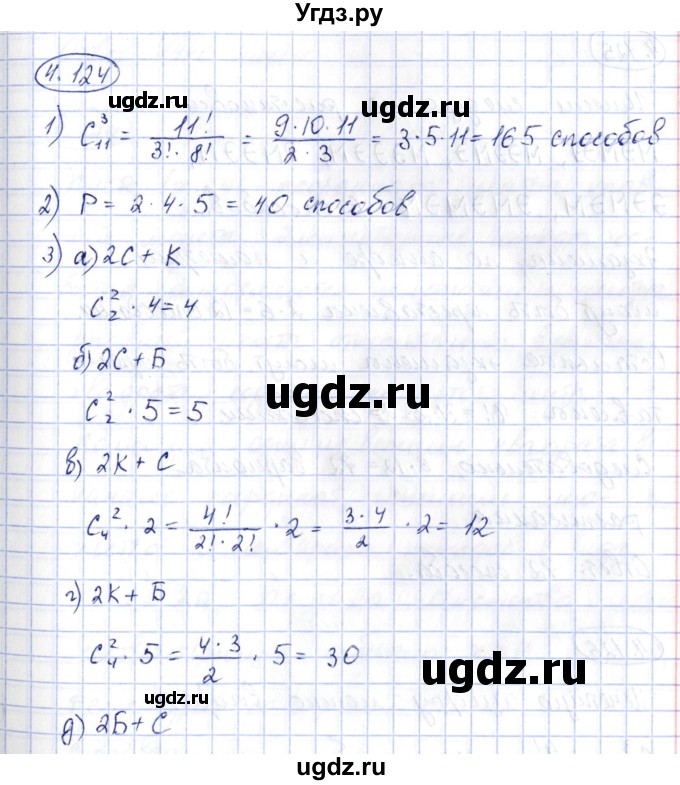 Угдз.ру
4.124
ugdz.ru
1) C₁₁³ = 11!/(3!·8!) = (9·10·11)/(2·3) = 3·5·11 = 165 способов
2) P = 2·4·5 = 40 способов
ugdz.ru
3) а) 2С + К
C₂² · 4 = 4
б) 2С + Б
ugdz.ru
C₂² · 5 = 5
в) 2К + С
ugdz.ru
C₄² · 2 = 4!/(2!·2!) · 2 = (3·4)/2 · 2 = 12
г) 2К + Б
C₄² · 5 = (4·3)/2 · 5 = 30
ugdz.ru
д) 2Б + С
ugdz.ru
ugdz.ru